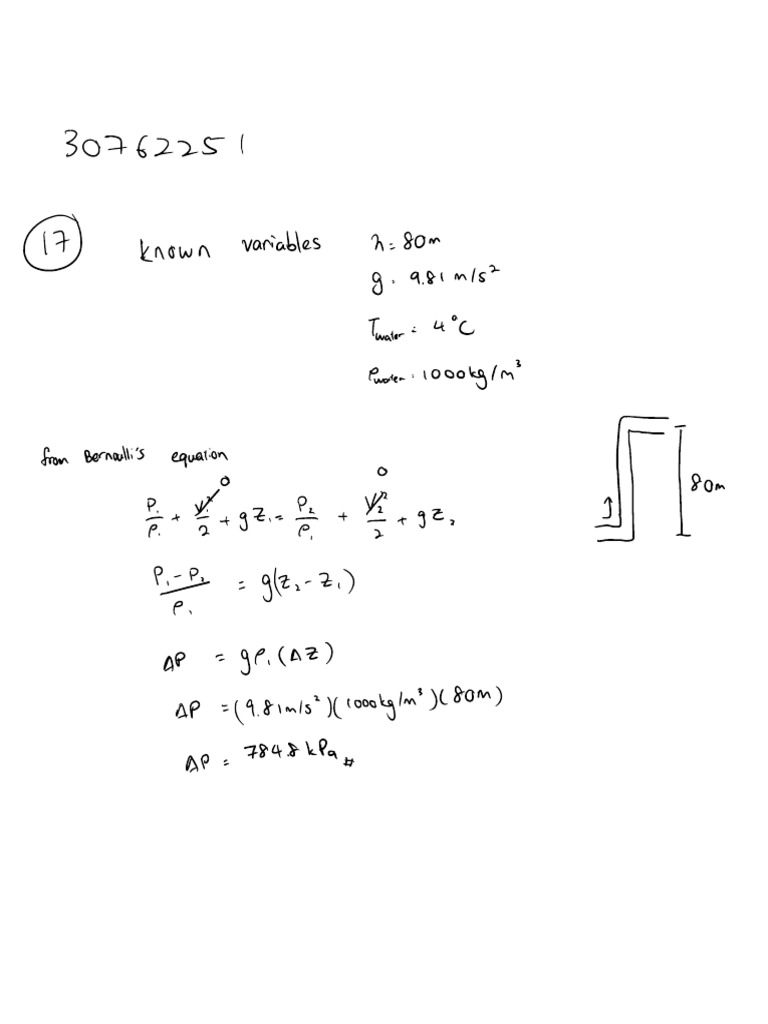 30762251
17 known variables h = 80m
g = 9.81 m/s²
Twater = 4°C
ρwater = 1000kg/m³
from Bernoulli's equation
P₁/ρ₁ + V₁²/2 + gZ₁ = P₂/ρ₁ + V₂²/2 + gZ₂
0 0
80m
P₁-P₂/ρ₁ = g(Z₂-Z₁)
ΔP = gρ₁(ΔZ)
ΔP = (9.81m/s²)(1000kg/m³)(80m)
ΔP = 784.8 kPa #